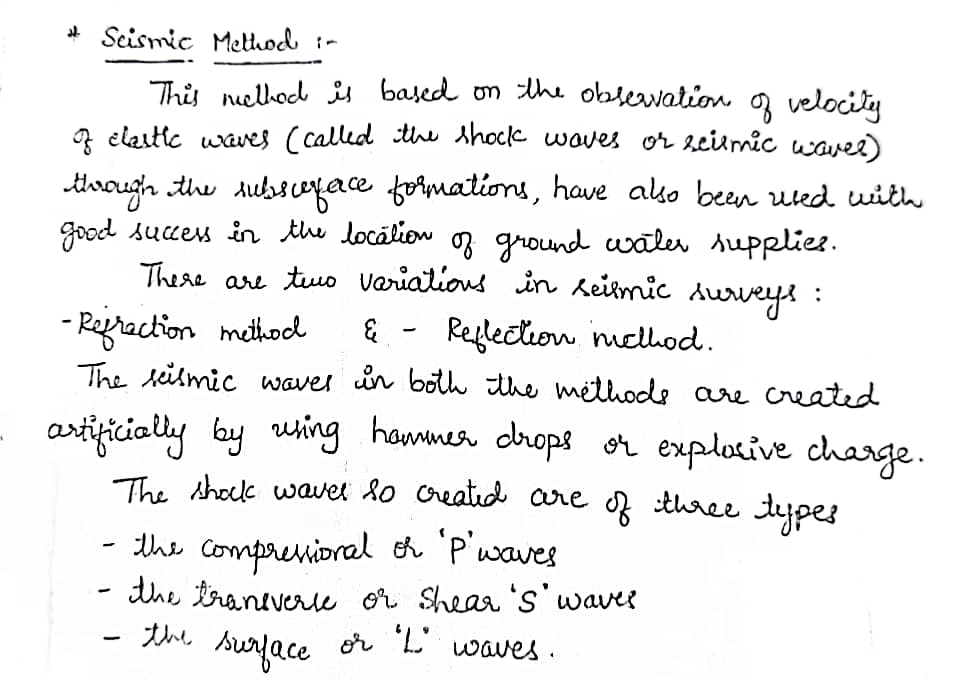 * Seismic Method :-
This method is based on the observation of velocity
of elastic waves (called the shock waves or seismic waves)
through the subsurface formations, have also been used with
good success in the location of ground water supplies.
There are two variations in seismic surveys :
- Refraction method & - Reflection method.
The seismic waves in both the methods are created
artificially by using hammer drops or explosive charge.
The shock waves so created are of three types
- the compressional or 'P' waves
- the transverse or Shear 'S' waves
- the surface or 'L' waves.